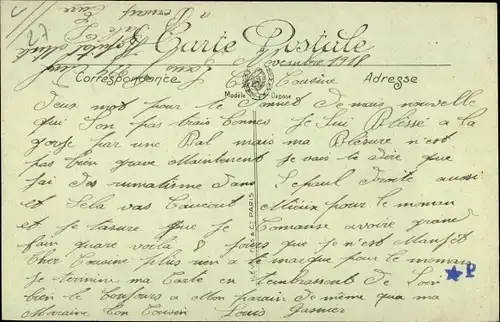 27
Carte Postale
Novembre 1918
Correspondance
Adresse
Modèle Déposé
Cher Cousine
Deus mot pour le Donnet de mais nouvelle
qui Son pas trais bonnes je Sui Bléssé a la
gorje par une Bal mais ma Blésure n'est
pas bien grave Maintenent je vais te dire que
j'ai des rumatisme dans l'épaul droite aussi
et Sela vas Baucout Mieux pour le moman
et je tasure que je Comanse avoire grand
fain quare voilà 8 jours que je n'est Manjét
Cher Cousine plus rien a te marque pour le moman
Je termine ma Carte en tembrassent de Loin
bien le bonjours a Mon parain de même qua ma
Maraine Ton Cousin Louis
P